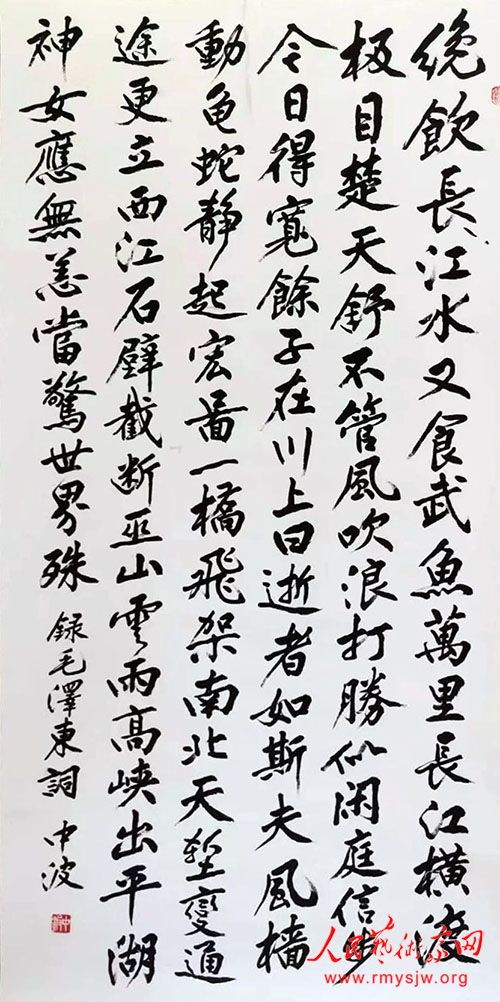 纔飲長江水又食武魚萬里長江橫渡
极目楚天舒不管風吹浪打勝似闲庭信步
今日得寬餘子在川上曰逝者如斯夫風檣
動龟蛇静起宏圖一橋飛架南北天塹變通
途更立西江石壁截断巫山雲雨高峡出平湖
神女應無恙當驚世界殊 録毛澤東詞 中波
人民藝術家网
www.rmysjw.org